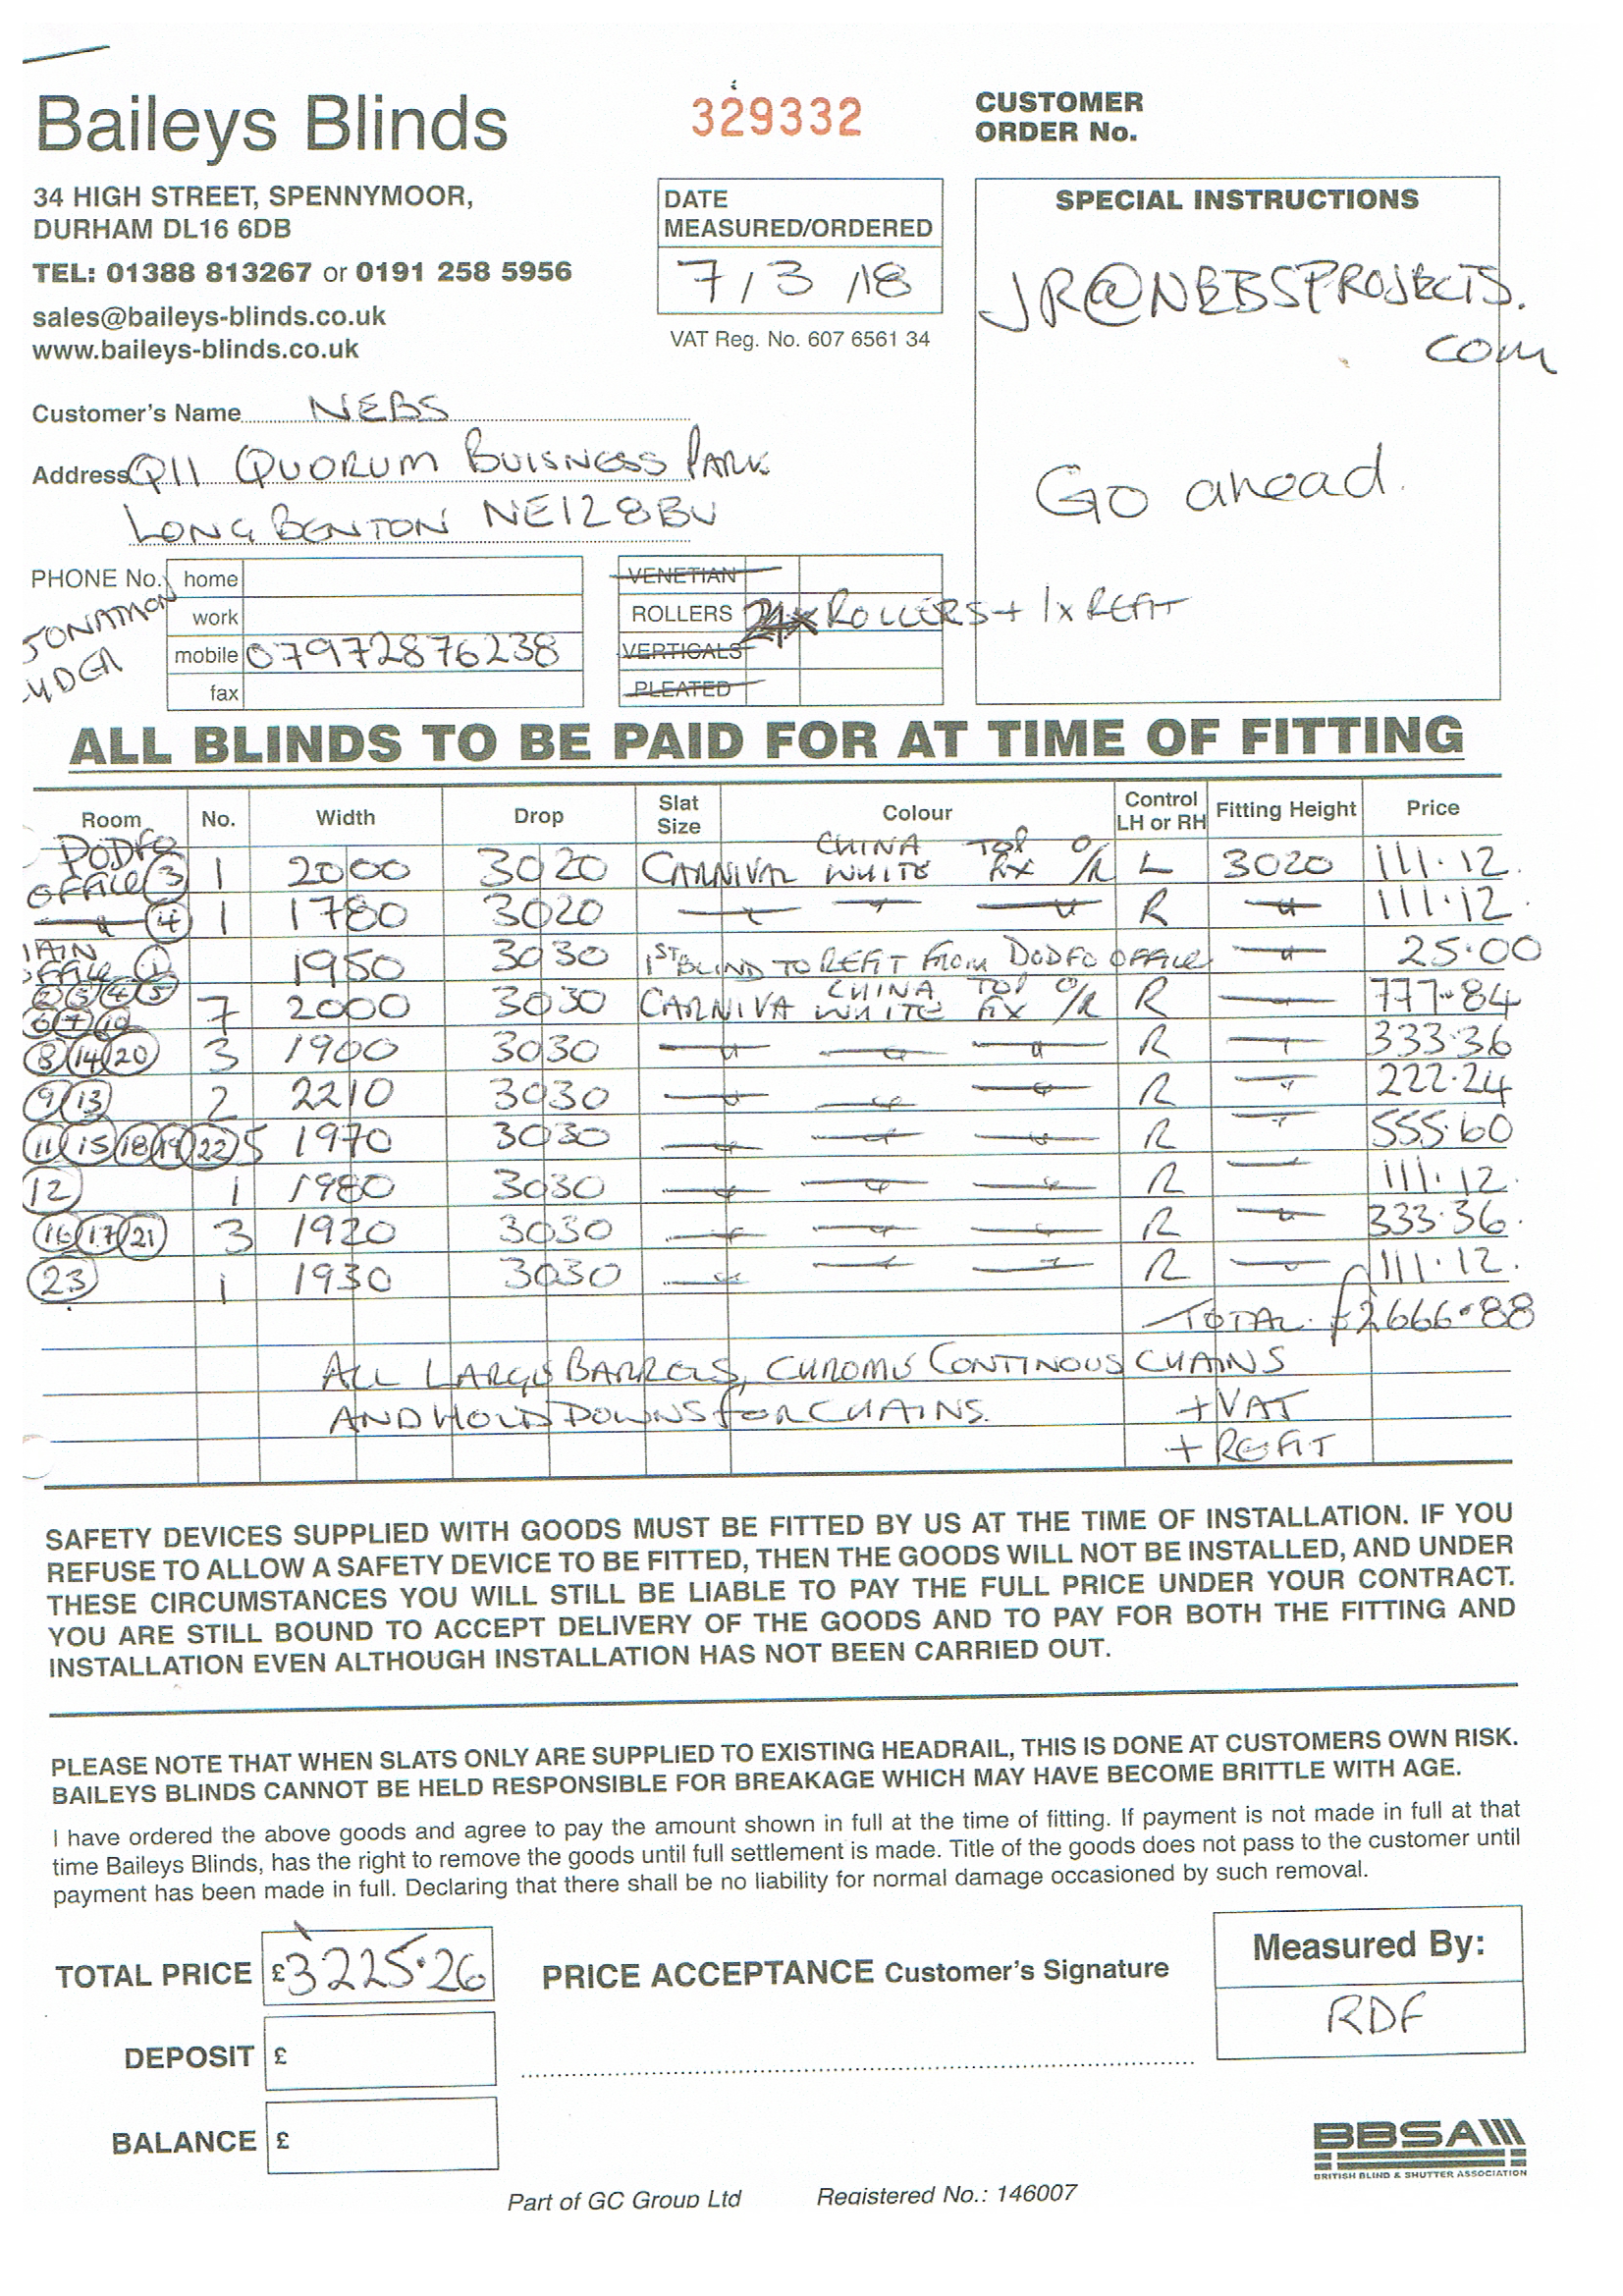 Baileys Blinds
329332
CUSTOMER
ORDER No.
34 HIGH STREET, SPENNYMOOR,
DURHAM DL16 6DB
TEL: 01388 813267 or 0191 258 5956
sales@baileys-blinds.co.uk
www.baileys-blinds.co.uk
DATE
MEASURED/ORDERED
7/3/18
VAT Reg. No. 607 6561 34
SPECIAL INSTRUCTIONS
JR@NEBSPROJECTS.
com
Go ahead.
Customer's Name NEBS
Address Q11 QUORUM BUISNESS PARK
LONG BENTON NE12 8BU
PHONE No. home
work
mobile 07972876238
fax
JONATHON
VENETIAN
ROLLERS 24x ROLLERS + 1x REFIT
VERTICALS
PLEATED
ALL BLINDS TO BE PAID FOR AT TIME OF FITTING
Room No. Width Drop Slat Size Colour Control LH or RH Fitting Height Price
PODFO OFFICE 3 1 2000 3020 CARNIVAL CHINA WHITE TOP FIX O/R L 3020 111.12
" 4 1 1780 3020 " " " R " 111.12
OFFICE 1 1950 3030 1ST BLIND TO REFIT FROM DODFO OFFICE " 25.00
2 3 4 5 6 7 10 7 2000 3030 CARNIVA CHINA WHITE TOP FIX O/R R 777.84
8 14 20 3 1900 3030 " " " R " 333.36
9 13 2 2210 3030 " " " R " 222.24
11 15 18 19 22 5 1970 3030 " " " R " 555.60
12 1 1980 3030 " " " R 111.12
16 17 21 3 1920 3030 " " " R " 333.36
23 1 1930 3030 " " " R " 111.12
TOTAL £2666.88
ALL LARGE BARRELS, CHROME CONTINOUS CHAINS
AND HOLD DOWNS FOR CHAINS. + VAT
+ REFIT
SAFETY DEVICES SUPPLIED WITH GOODS MUST BE FITTED BY US AT THE TIME OF INSTALLATION. IF YOU
REFUSE TO ALLOW A SAFETY DEVICE TO BE FITTED, THEN THE GOODS WILL NOT BE INSTALLED, AND UNDER
THESE CIRCUMSTANCES YOU WILL STILL BE LIABLE TO PAY THE FULL PRICE UNDER YOUR CONTRACT.
YOU ARE STILL BOUND TO ACCEPT DELIVERY OF THE GOODS AND TO PAY FOR BOTH THE FITTING AND
INSTALLATION EVEN ALTHOUGH INSTALLATION HAS NOT BEEN CARRIED OUT.
PLEASE NOTE THAT WHEN SLATS ONLY ARE SUPPLIED TO EXISTING HEADRAIL, THIS IS DONE AT CUSTOMERS OWN RISK.
BAILEYS BLINDS CANNOT BE HELD RESPONSIBLE FOR BREAKAGE WHICH MAY HAVE BECOME BRITTLE WITH AGE.
I have ordered the above goods and agree to pay the amount shown in full at the time of fitting. If payment is not made in full at that
time Baileys Blinds, has the right to remove the goods until full settlement is made. Title of the goods does not pass to the customer until
payment has been made in full. Declaring that there shall be no liability for normal damage occasioned by such removal.
TOTAL PRICE £3225.26
PRICE ACCEPTANCE Customer's Signature
Measured By:
RDF
DEPOSIT £
BALANCE £
BBSA
BRITISH BLIND & SHUTTER ASSOCIATION
Part of GC Group Ltd Registered No.: 146007